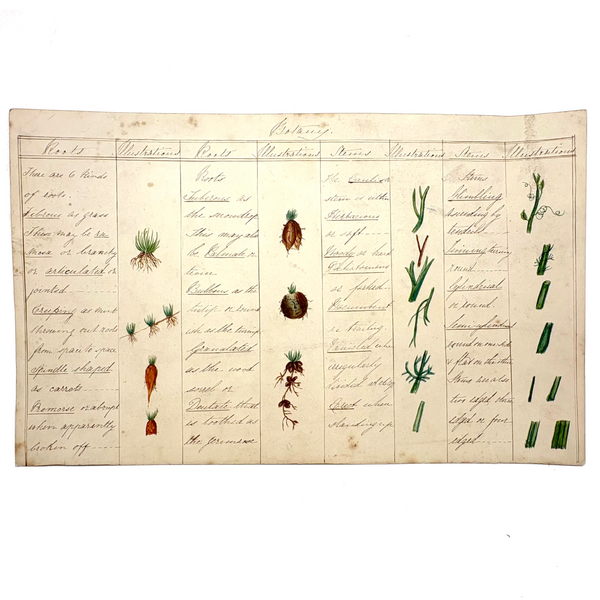 Botany.
Roots
Illustrations
Roots
Illustrations
Stems
Illustrations
Stems
Illustrations
There are 6 kinds
of roots.
fibrous as grass
These may be
or branchy
or articulated or
jointed
Creeping as mint
throwing out roots
from space to space
spindle shaped
as carrots
Premorse or abrupt
when apparently
broken off
Roots
Tuberous as
the snowdrop
This may also
be Palmate or
Bulbous as the
tulip or round
as the turnip
Granulated
as the wood
sorrel or
Dentate that
is toothed as
the
The
stem is either
Herbaceous
or soft
Woody or hard
Dichotomous
as forked
Procumbent
or trailing
when
irregularly
Erect when
standing up
Stems
Climbling
ascending by
tendrils
Twining turning
round
Cylindrical
or round
Semi cylindrical
round on one side
& flat on the other
Stems are also
two edged three
edged or four
edged